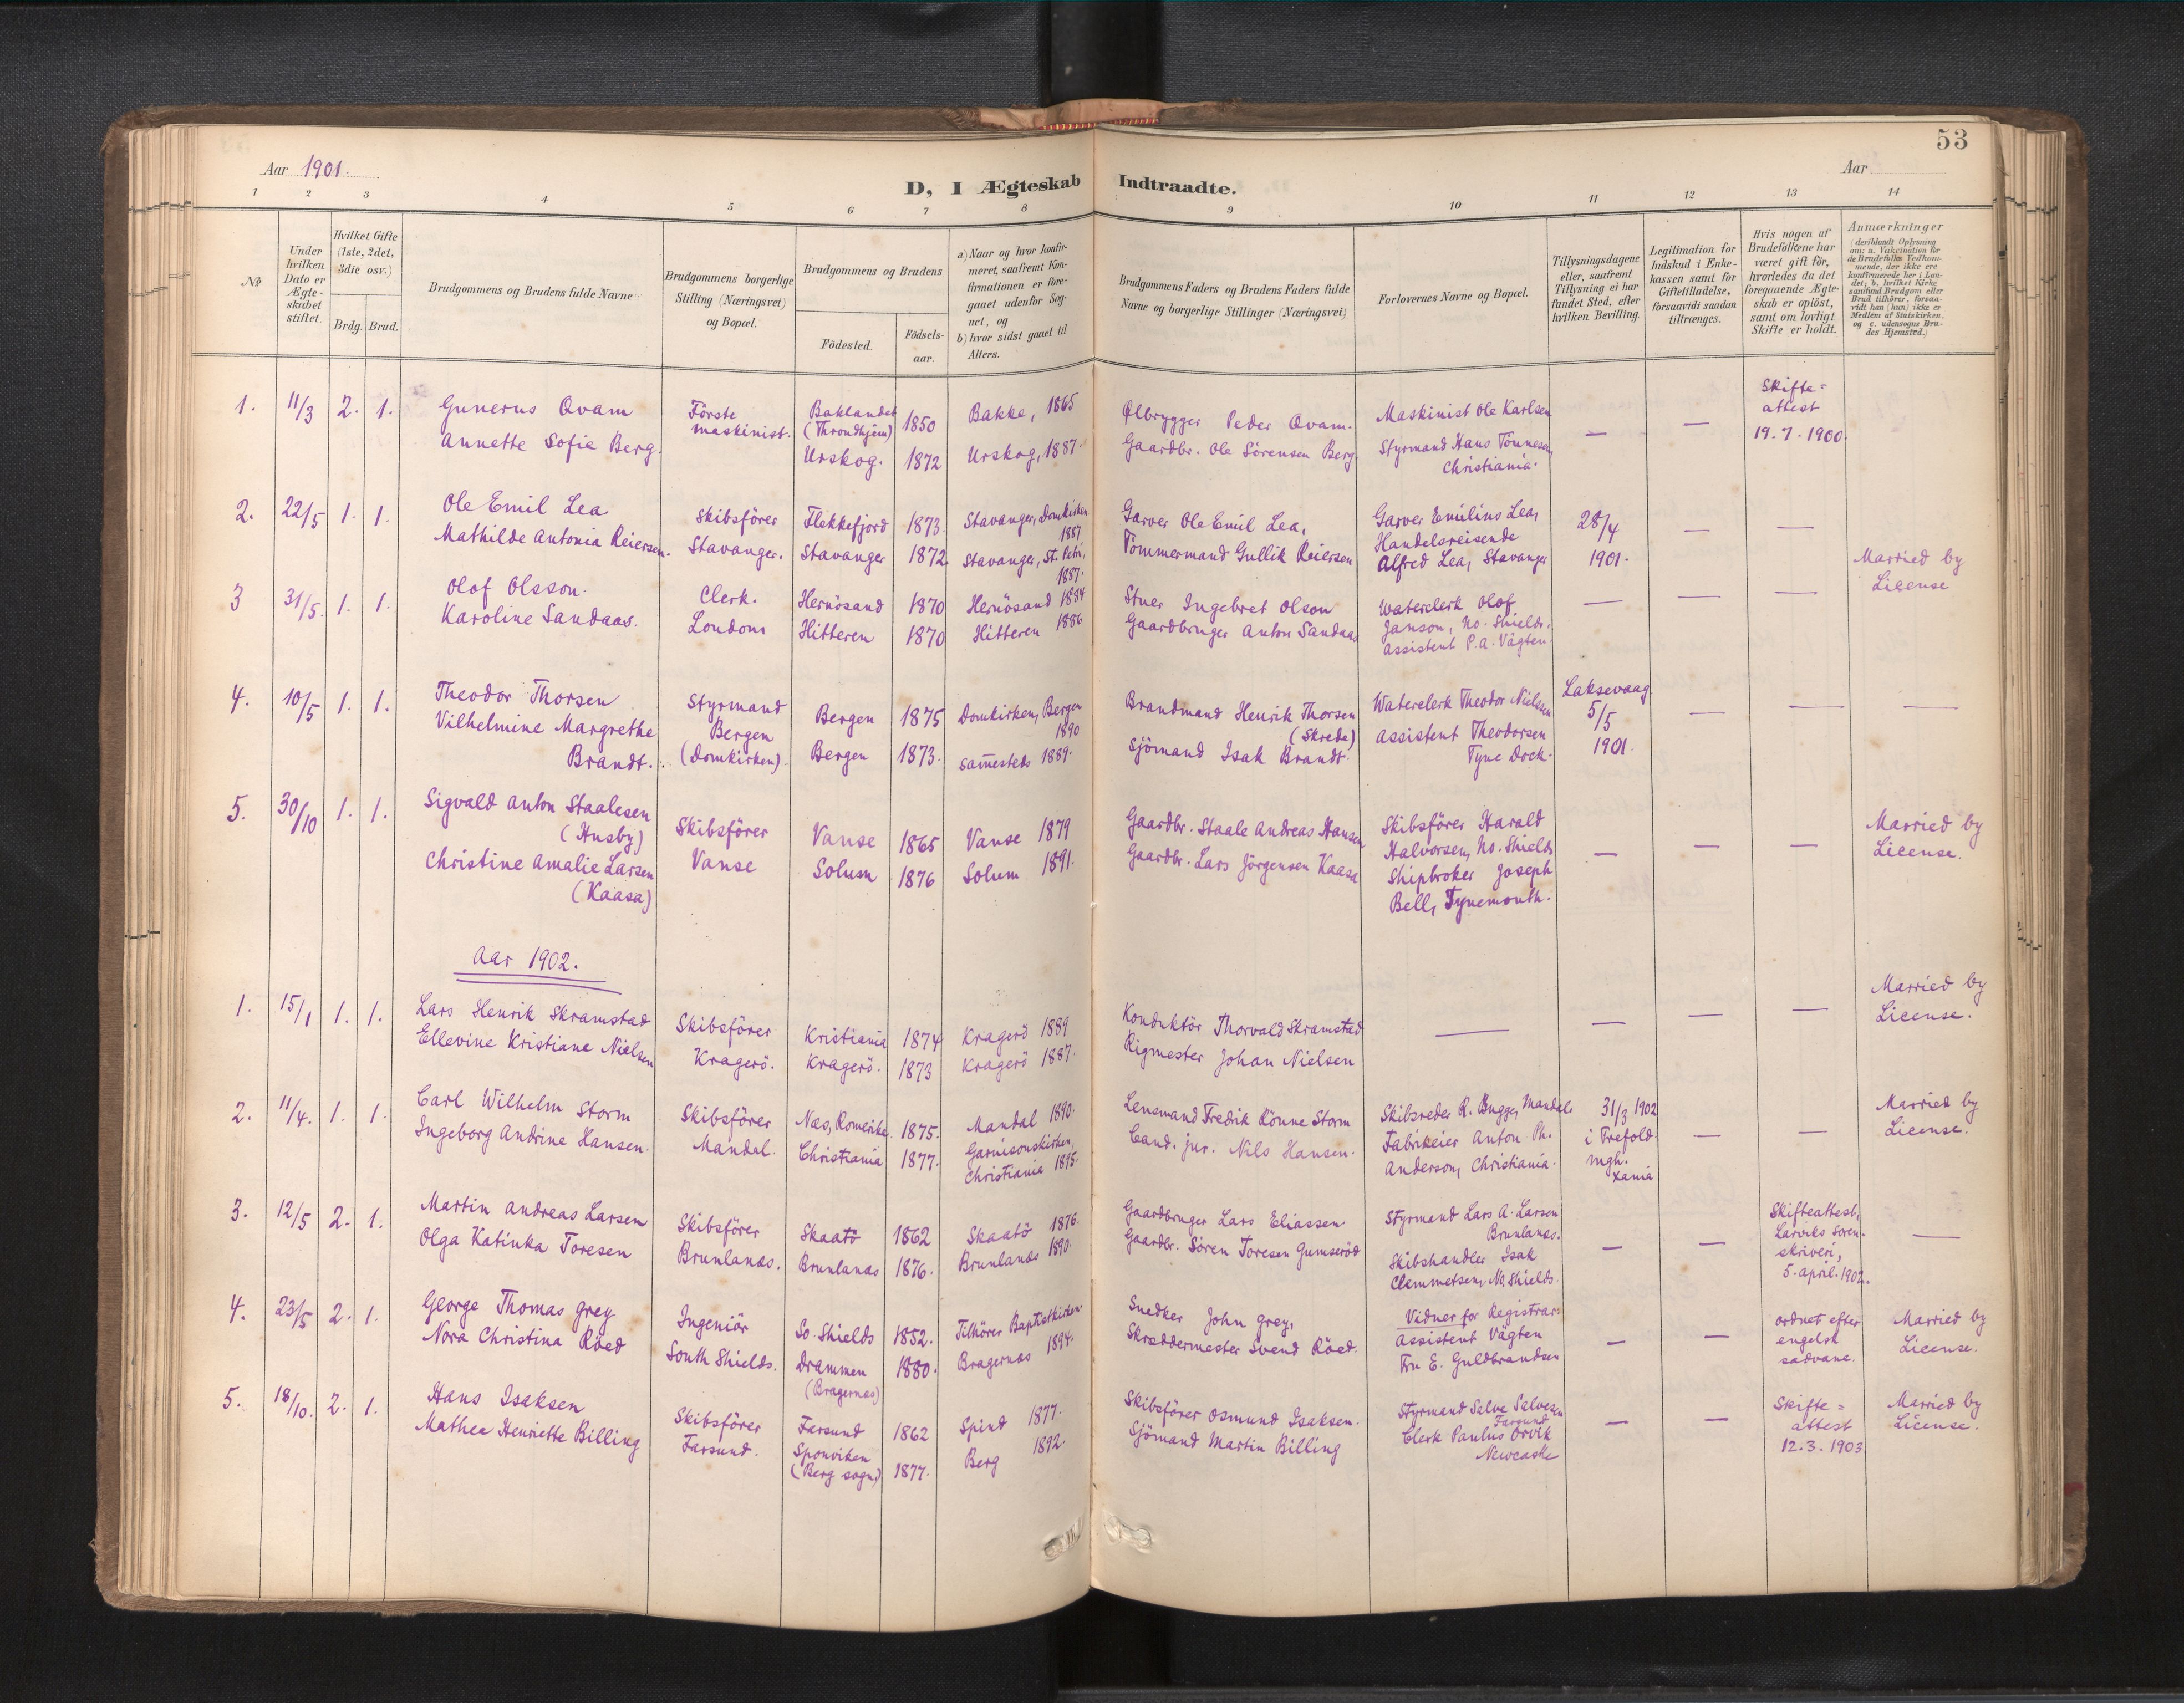 53
Aar 1901.
Aar
D, I Ægteskab Indtraadte.
1 2 3 4 5 6 7 8 9 10 11 12 13 14
No
Under
hvilken
Dato er
Ægte-
skabet
stiftet.
Hvilket Gifte
(1ste, 2det,
3die osv.)
Brdg. Brud.
Brudgommens og Brudens fulde Navne
Brudgommens borgerlige
Stilling (Næringsvei)
og Bopæl.
Brudgommens og Brudens
Födested.
Födsels-
aar.
a) Naar og hvor konfir-
meret, saafremt Kon-
firmationen er fore-
gaaet udenfor Sog-
net, og
b) hvor sidst gaaet til
Alters.
Brudgommens Faders og Brudens Faders fulde
Navne og borgerlige Stillinger (Næringsvei)
Forlovernes Navne og Bopæl.
Tillysningsdagene
eller, saafremt
Tillysning ei har
fundet Sted, efter
hvilken Bevilling.
Legitimation for
Indskud i Enke-
kassen samt for
Giftetilladelse,
forsaavidt saadan
tiltrænges.
Hvis nogen af
Brudefolkene har
været gift för,
hvorledes da det
foregaaende Ægte-
skab er oplöst,
samt om lovligt
Skifte er holdt.
Anmærkninger
(deriblandt Oplysning
om: a. Vakcination for
de Brudefolks Vedkom-
mende, der ikke ere
konfirmerede her i Lan-
det; b. hvilket Kirke
samfund Brudgom eller
Brud tilhörer, forsaa-
vidt han (hun) ikke er
Medlem af Statskirken,
og c. udensogns Bru-
des Hjemsted.)
1. 11/3 2. 1.
Gunerus Qvam
Annette Sofie Berg.
Förste
maskinist.
Baklandet
(Throndhjem) 1850
Urskog. 1872
Bakke, 1865
Urskog, 1887.
Ølbrygger Peder Qvam.
Gaardbr. Ole Sörensen Berg.
Maskinist Ole Karlsen
Styrmand Hans Tönnesen,
Christiania.
— —
Skifte=
attest
19.7.1900.
2. 22/5 1. 1.
Ole Emil Lea
Mathilde Antonia Reiersen.
Skibsförer
Stavanger.
Flekkefjord 1873.
Stavanger 1872.
Stavanger, Domkirken
1887
Stavanger, St. Petri,
1887.
Garver Ole Emil Lea,
Tömmermand Gullik Reiersen
Garver Emilius Lea,
Handelsreisende
Alfred Lea, Stavanger
28/4
1901.
— —
3 31/5. 1. 1.
Olof Olsson.
Karoline Sandaas.
Clerk.
London
Hernösand 1870
Hitteren 1870
Hernösand 1884
Hitteren 1886
Stuer Ingebret Olson
Gaardbruger Anton Sandaas
Waterclerk Olof
Janson, No. Shields.
Assistent P.A. Vågten
— — —
Married by
License
4. 10/5 1. 1.
Theodor Thorsen
Vilhelmine Margrethe
Brandt.
Styrmand
Bergen
(Domkirken).
Bergen 1875
Bergen 1873.
Domkirken, Bergen
1890
sammesteds 1889.
Brandmand Henrik Thorsen
(Skrede)
Sjömand Isak Brandt.
Waterclerk Theodor Nielsen
Assistent Theodorsen
Tyne Dock.
Laksevaag.
5/5
1901.
— — —
5. 30/10 1. 1.
Sigvald Anton Staalesen
(Husby)
Christine Amalie Larsen
(Kaasa)
Skibsförer
Vanse
Vanse 1865
Solum 1876
Vanse 1879
Solum 1891.
Gaardbr. Staale Andreas Hansen
Gaardbr. Lars Jörgensen Kaasa
Skibsförer Harald
Halvorsen, No. Shields
Shipbroker Joseph
Bell, Tynemouth.
— — —
Married by
License.
Aar 1902.
1. 15/1 1. 1.
Lars Henrik Skramstad
Ellevine Kristiane Nielsen
Skibsförer
Kragerö.
Kristiania 1874
Kragerö. 1873
Kragerö 1889
Kragerö 1887.
Konduktör Thorvald Skramstad
Rigmester Johan Nielsen
— — — —
Married by
License.
2. 11/4. 1. 1.
Carl Wilhelm Storm
Ingeborg Andrine Hansen.
Skibsförer
Mandal.
Næs, Romerike. 1875.
Christiania 1877.
Mandal 1890.
Garnisonskirken,
Christiania 1895.
Lensmand Fredrik Rönne Storm
Cand. jur. Nils Hansen.
Skibsreder R. Bugge, Mandal.
Fabrikeier Anton Ph.
Anderson, Christiania.
31/3 1902
i Trefold.
mgh.
Xania
— —
Married by
License.
3. 12/5 2. 1.
Martin Andreas Larsen
Olga Katinka Toresen
Skibsförer
Brunlanæs.
Skaatö 1862
Brunlanæs 1876.
Skaatö 1876.
Brunlanæs 1890.
Gaardbruger Lars Eliassen.
Gaardbr. Sören Toresen Gumseröd
Styrmand Lars A. Larsen
Brunlanæs.
Skibshandler Isak
Clemmetsen, No. Shields.
— —
Skifteattest,
Larviks Soren-
skriveri,
5. april. 1902.
—
4. 23/5 2. 1.
George Thomas Grey
Nora Christina Röed
Ingeniör
South Shields.
So. Shields 1852.
Drammen 1880.
(Bragernæs)
Tilhörer Baptistkirken.
Bragernæs 1894.
Snedker John Grey,
Skræddermester Svend Röed.
Vidner for Registrar:
Assistent Vågten
Fru E. Guldbrandsen
— —
ordnet efter
engelsk
sædvane.
Married by
License.
5. 18/10. 2. 1.
Hans Isaksen
Mathea Henriette Billing
Skibsförer
Farsund.
Farsund 1862
Sponviken
(Berg sogn) 1877.
Spind 1877.
Berg 1892.
Skibsförer Osmund Isaksen.
Sjömand Martin Billing
Styrmand Salve Salvesen
Farsund
Clerk Paulus Orvik
Newcastle
— —
Skifte=
attest
12.3.1903
Married by
License.